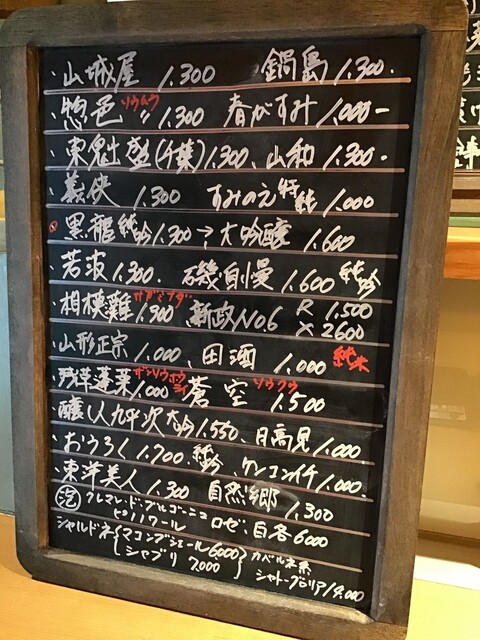 ・山城屋 1.300 鍋島 1.300-
・惣邑 ソウムラ 〃 1.300 春がすみ 1,000-
・東魁盛(千葉)1.300、山和 1.300-
・義侠 1.300 すみのえ特純 1,000
・黒龍純吟1.300→大吟醸 1,600
・若波1.300. 磯自慢 1,600 純吟
・相模灘 サガミナダ 1,300 新政No.6 R 1,500 X 2600
・山形正宗 1,000、田酒 1,000 純米
・残草蓬莱 ザルソウホウライ 1,000 蒼空 ソウクウ 1.500
・醸し人九平次 大吟1.550、月高見 1,000
・おうろく 1,700. 純吟、ケンコンイチ 1,000.
・東洋美人 1,300 自然郷 1,300
泡 クレマン・ド・ブルゴーニュ ピノノワール ロゼ、白各6000
シャルドネ マコンヴシェール6000 シャブリ 7,000 カベルネ系 シャトーグロリア14,000